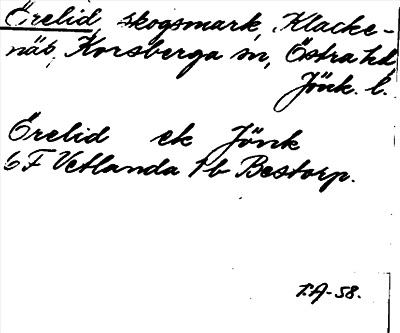 Örelid, skogsmark, Klacke-
näs, Korsberga sn, Östra hd,
Jönk. l.
Örelid ek Jönk
6F Vetlanda 1b Bestorp.
T.A-58.